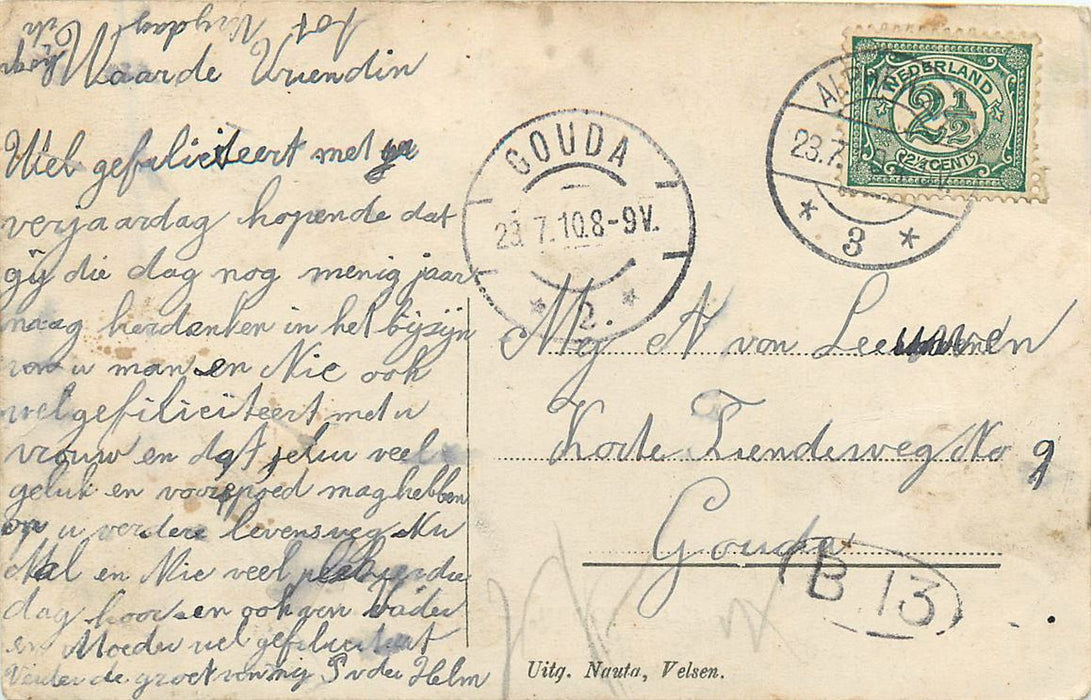 Tot
Vrijdag
Waarde Vriendin
Wel gefiliciteert met u
verjaardag hopende dat
gij die dag nog menig jaar
maag herdenken in het bijzijn
van u man en Nic ook
wel gefiliciteert met u
vrouw en dat jelui veel
geluk en voorspoed mag hebben
op u verdere levensweg Nu
Nal en Nic veel die
dag hoor en ook van Vader
en Moeder wel gefiliciteert
Verder de groet van mij S vder Helm
GOUDA
23.7.10.8-9V.
* 2. *
AL
23.7.
V.
* 3 *
NEDERLAND
2½
(2½ CENT)
Mej A van Leeuwen
Korte Tiendeweg No 9
Gouda
B 13
Uitg. Nauta, Velsen.